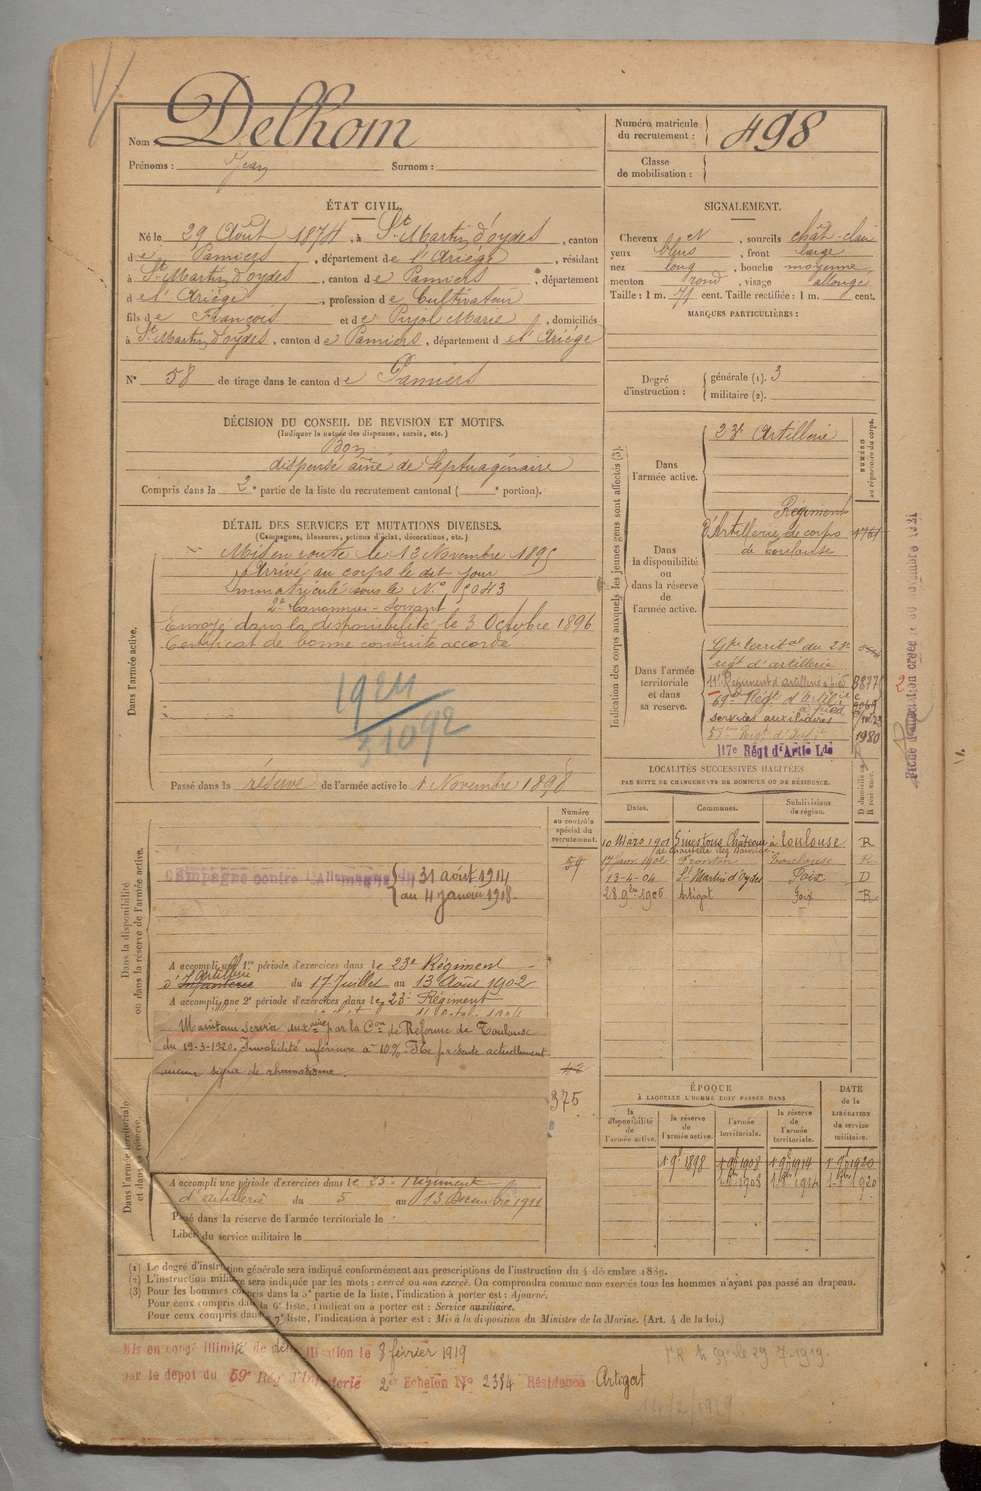 Nom : Delhom
Prénoms : Jean Surnom :
Numéro matricule du recrutement : 498
Classe de mobilisation :
ÉTAT CIVIL.
Né le 29 Août 1874, à St Martin d'oydes, canton
de Pamiers, département de l'Ariège, résidant
à St Martin d'oydes, canton de Pamiers, département
de l'Ariège, profession de Cultivateur
fils de François et de Pujol Marie, domiciliés
à St Martin d'oydes, canton de Pamiers, département de l'Ariège
N° 58 de tirage dans le canton de Pamiers
SIGNALEMENT.
Cheveux N, sourcils chât-clair
yeux bleus, front large
nez long, bouche moyenne
menton rond, visage allongé
Taille : 1 m. 74 cent. Taille rectifiée : 1 m. cent.
MARQUES PARTICULIÈRES :
Degré d'instruction : générale (1). 3
militaire (2).
DÉCISION DU CONSEIL DE REVISION ET MOTIFS.
(Indiquer la nature des dispenses, sursis, etc.)
Bon
dispensé aîné de Septuagénaire
Compris dans la 2e partie de la liste du recrutement cantonal ( e portion).
DÉTAIL DES SERVICES ET MUTATIONS DIVERSES.
(Campagnes, blessures, actions d'éclat, décorations, etc.)
Dans l'armée active.
Mis en route le 13 Novembre 1895
Arrivé au corps le dit jour
Immatriculé sous le N° 5043
2e Canonnier-servant
Envoyé dans la disponibilité le 3 Octobre 1896
Certificat de bonne conduite accordé
1924
31092
Passé dans la réserve de l'armée active le 1 Novembre 1898
Indication des corps auxquels les jeunes gens sont affectés (3).
NUMÉRO au répertoire du corps.
Dans l'armée active. 23e Artillerie
Dans la disponibilité ou dans la réserve de l'armée active.
Régiment
d'Artillerie de corps 1761
de Toulouse
Dans l'armée territoriale et dans sa réserve.
Gpe territal du 23e
régt d'artillerie
69e Régt d'Artillie
à pied
services auxiliaires
1980
117e Régt d'Artie Lde
LOCALITÉS SUCCESSIVES HABITÉES
PAR SUITE DE CHANGEMENTS DE DOMICILE OU DE RÉSIDENCE.
Dates. Communes. Subdivisions de région. D domicile ou R résidence.
10 Mars 1901 Toulouse R
17 Janv 1902 Fronton Toulouse R
13-4-04 St Martin d'Oydes Foix D
28 9bre 1905 Artigat Foix R
Dans la disponibilité ou dans la réserve de l'armée active.
Numéro au contrôle spécial du recrutement.
59
Campagne contre l'Allemagne du 31 août 1914
au 4 janvier 1918.
A accompli une 1re période d'exercices dans le 23e Régiment
d'Infanterie Artillerie du 17 Juillet au 13 Août 1902
A accompli une 2e période d'exercices dans le 23e Régiment
Maintenu service auxaire par la Con de Réforme de Toulouse
du 19-3-1920. Invalidité inférieure à 10%. Ne présente actuellement
aucun signe de rhumatisme.
42
375
Dans l'armée territoriale et dans sa réserve.
A accompli une période d'exercices dans le 23e Régiment
d'artillerie du 5 au 13 Décembre 1911
Passé dans la réserve de l'armée territoriale le
Libéré du service militaire le
ÉPOQUE
À LAQUELLE L'HOMME DOIT PASSER DANS
la disponibilité de l'armée active. la réserve de l'armée active. l'armée territoriale. la réserve de l'armée territoriale.
DATE de la LIBÉRATION du service militaire.
1er 9bre 1898 1er 9bre 1908 1er 9bre 1914 1er 9bre 1920
(1) Le degré d'instruction générale sera indiqué conformément aux prescriptions de l'instruction du 4 décembre 1889.
(2) L'instruction militaire sera indiquée par les mots : exercé ou non exercé. On comprendra comme non exercés tous les hommes n'ayant pas passé au drapeau.
(3) Pour les hommes compris dans la 5e partie de la liste, l'indication à porter est : Ajourné.
Pour ceux compris dans la 6e liste, l'indication à porter est : Service auxiliaire.
Pour ceux compris dans la 7e liste, l'indication à porter est : Mis à la disposition du Ministre de la Marine. (Art. 4 de la loi.)
Mis en congé illimité de démobilisation le 8 février 1919
par le dépôt du 59e Rég d'Infanterie 2e Echelon N° 2384 Résidence Artigat
14/2/1919.